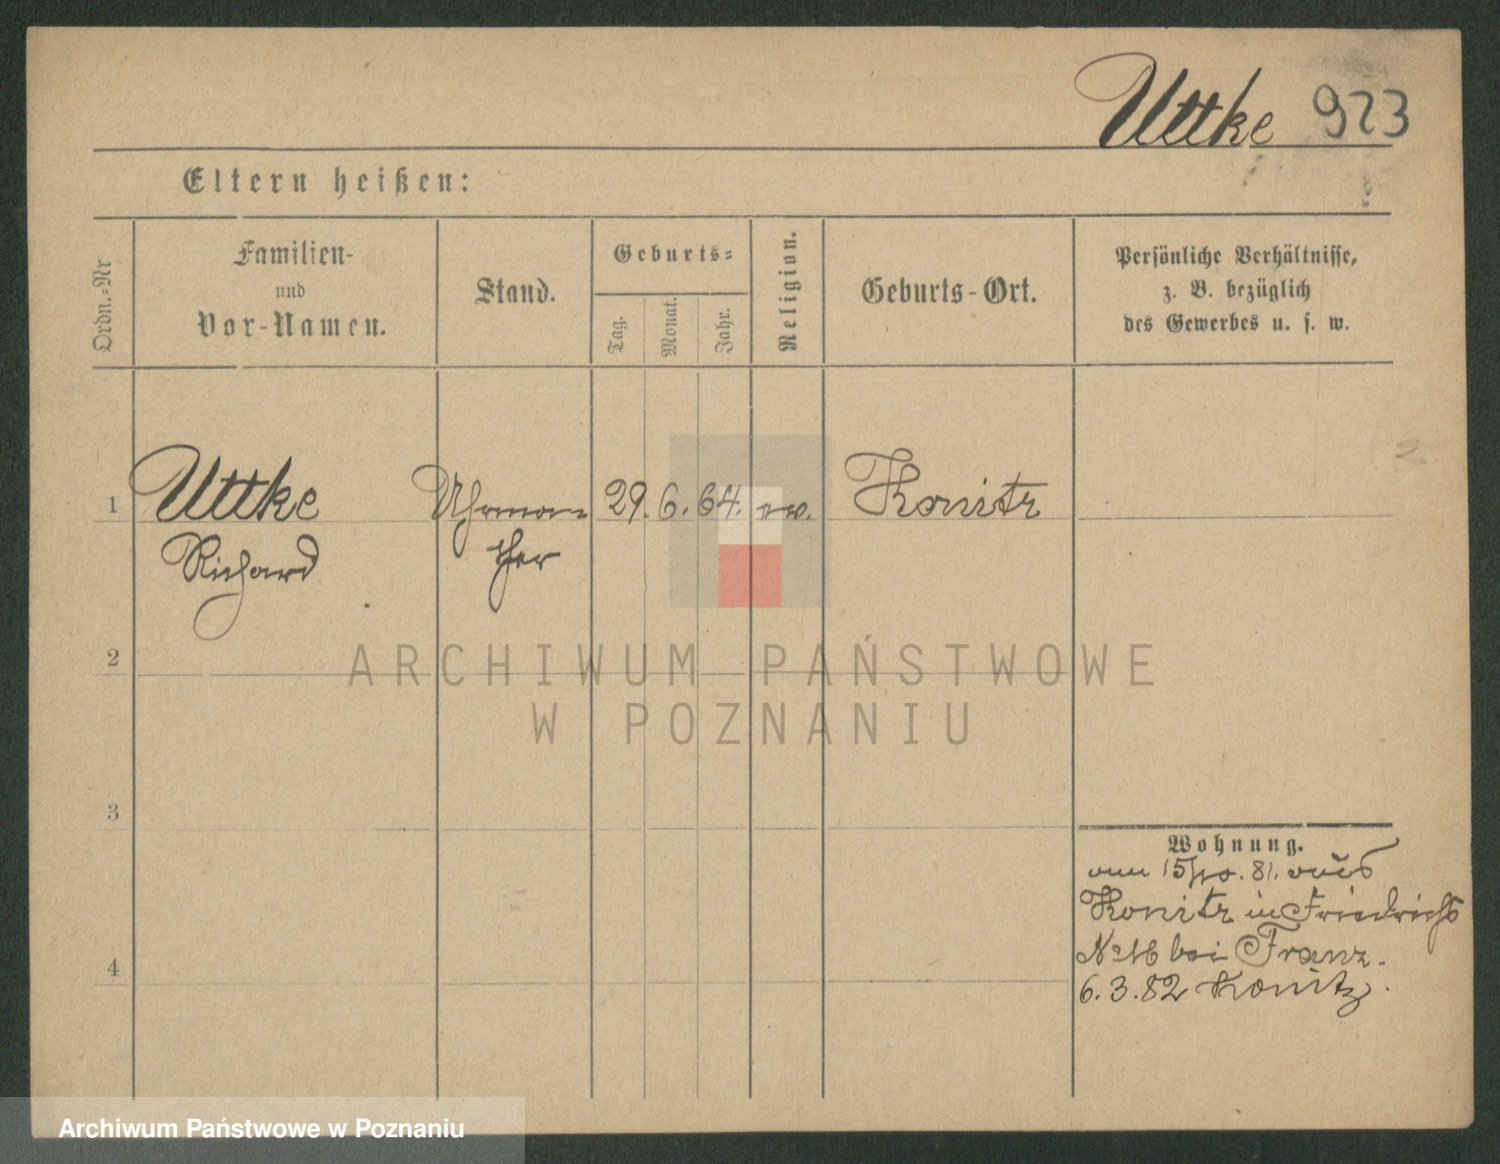 Uttke 923
Eltern heißen:
Ordn.-Nr
Familien-
und
Vor-Namen.
Stand.
Geburts-
Tag.
Monat.
Jahr.
Religion.
Geburts-Ort.
Persönliche Verhältnisse,
z. B. bezüglich
des Gewerbes u. s. w.
1 Uttke Uhrma- 29. 6. 64. ev. Konitz
Richard cher
2
ARCHIWUM PAŃSTWOWE
W POZNANIU
3
Wohnung.
vom 15/10. 81. aus
Konitz in Friedrichs
No 16 bei Franz.
4
6. 3. 82 Konitz.
Archiwum Państwowe w Poznaniu